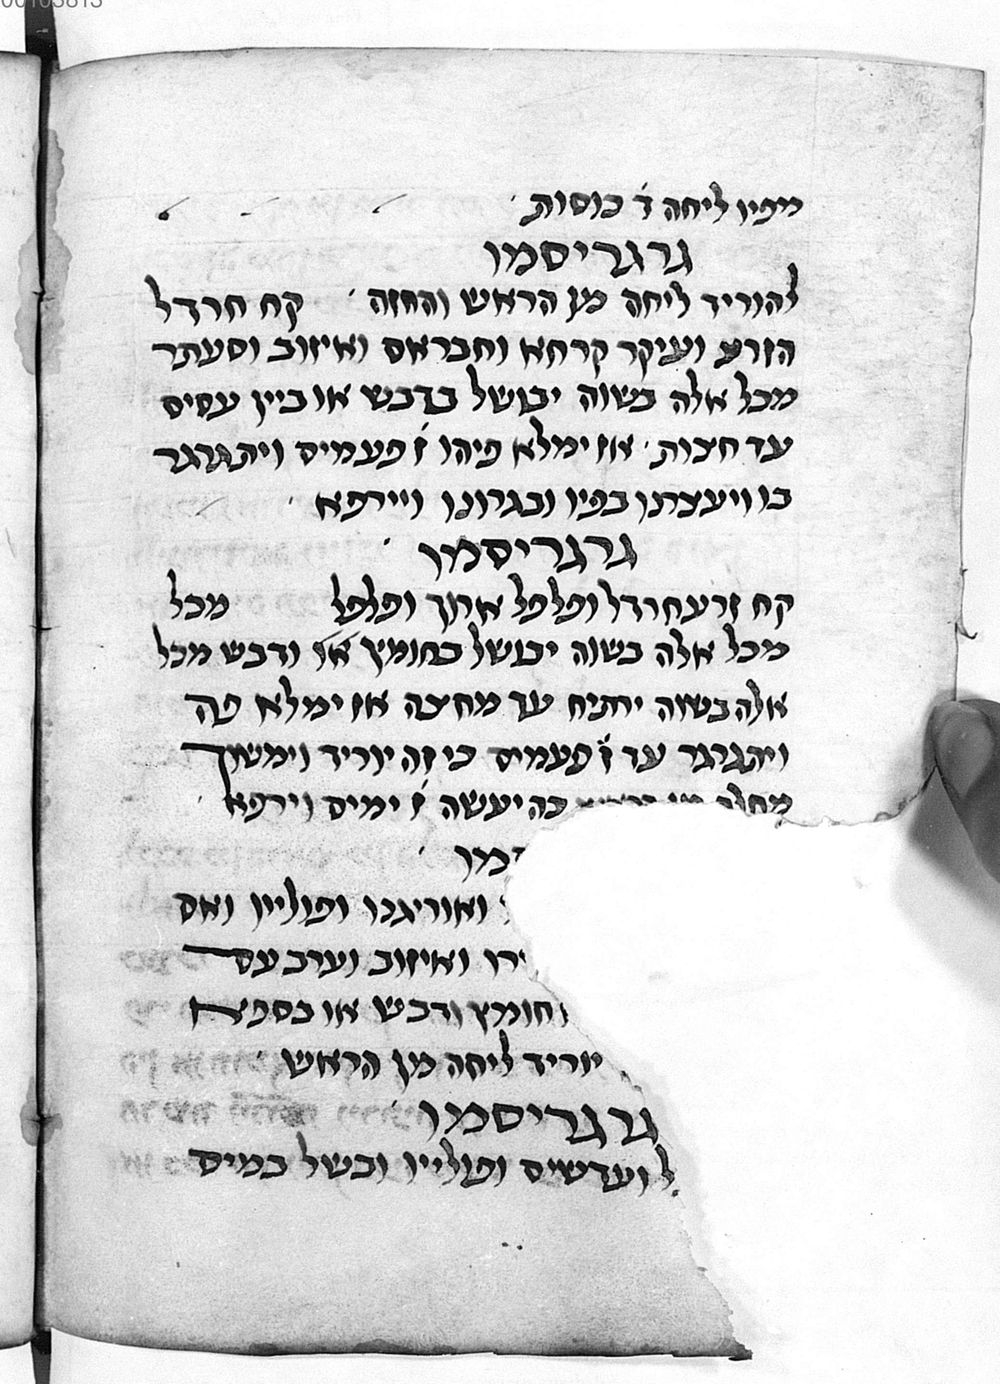 00103813
מפיו ליחה ד׳ כוסות
גרגריסמו
להוריד ליחה מן הראש והחזה קח חרדל
הזרע ועיקר קרחא וחבראס ואיזוב וסעתר
מכל אלה בשוה יבושל בדבש או ביין עסיס
עד חצות אז ימלא פיהו ז׳ פעמים ויתגרגר
בו ויעצרנו בפיו ובגרונו ויירפא
גרגריסמו
קח זרע חרדל ופלפל ארוך ופלפל מכל
מכל אלה בשוה יבושל בחומץ או ודבש מכל
אלה בשוה ירתיח עד מחיצה אז ימלא פה
ויתגרגר עד ז׳ פעמים כי זה יוריד וימשוך
כה יעשה ז׳ ימים וירפא
סמו
ואוריגנו ופוליו ואס
ירו ואיזוב וערב עם
חומץ ודבש או בספא
יוריד ליחה מן הראש
גרגריסמו
ל ועדשים ופולייו ובשל במים